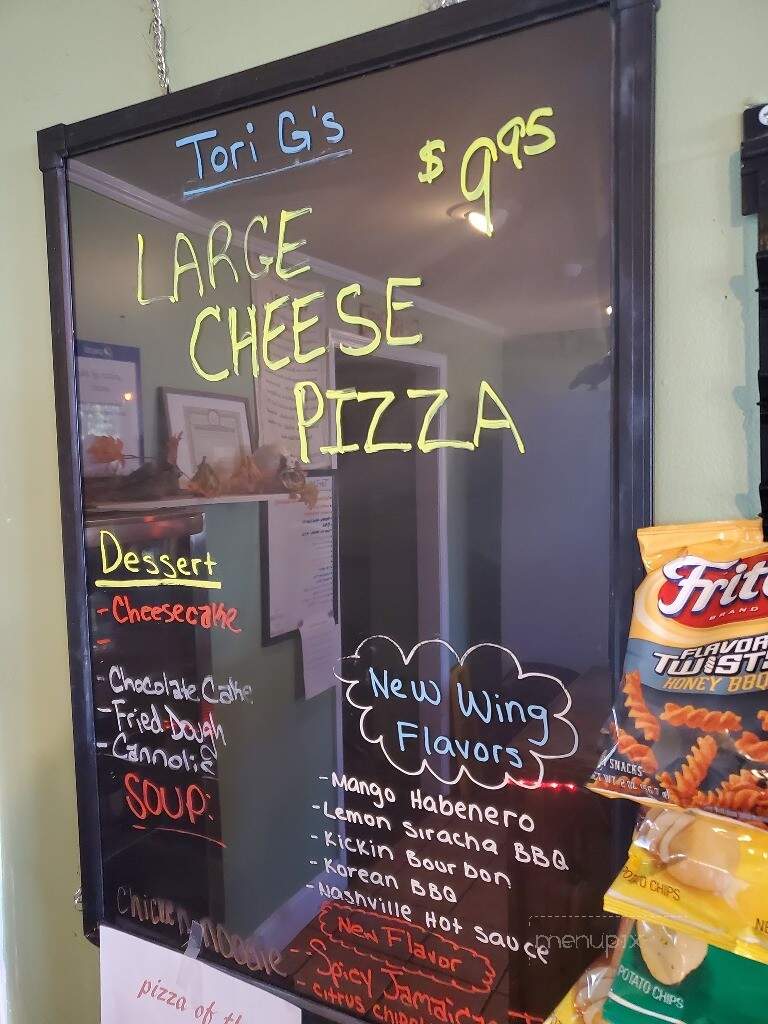 Tori G's
$9.95
LARGE
CHEESE
PIZZA
Dessert
- Cheesecake
-
- Chocolate Cake
- Fried Dough
- Cannolis
SOUP:
Chicken noodle
New Wing
Flavors
- Mango Habenero
- Lemon Siracha BBQ
- Kickin Bourbon
- Korean BBQ
- Nashville Hot Sauce
New Flavor
- Spicy Jamaica
- Citrus
pizza of
Frit
BRAND
FLAVOR
TWISTS
HONEY BBQ
SNACKS
CHIPS
POTATO CHIPS
menupix